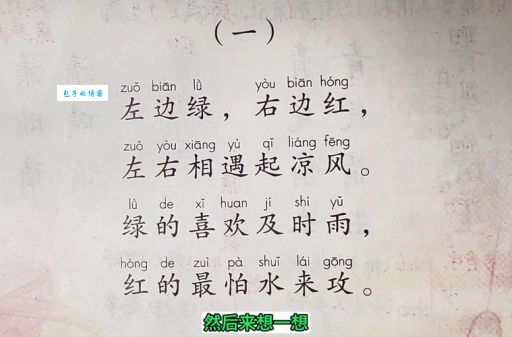 （一）
包子的博客
zuǒ biān lǜ yòu biān hóng
左边绿，右边红，
zuǒ yòu xiāng yù qǐ liáng fēng
左右相遇起凉风。
lǜ de xǐ huan jí shí yǔ
绿的喜欢及时雨，
hóng de zuì pà shuǐ lái gōng
红的最怕水来攻。
然后来想一想